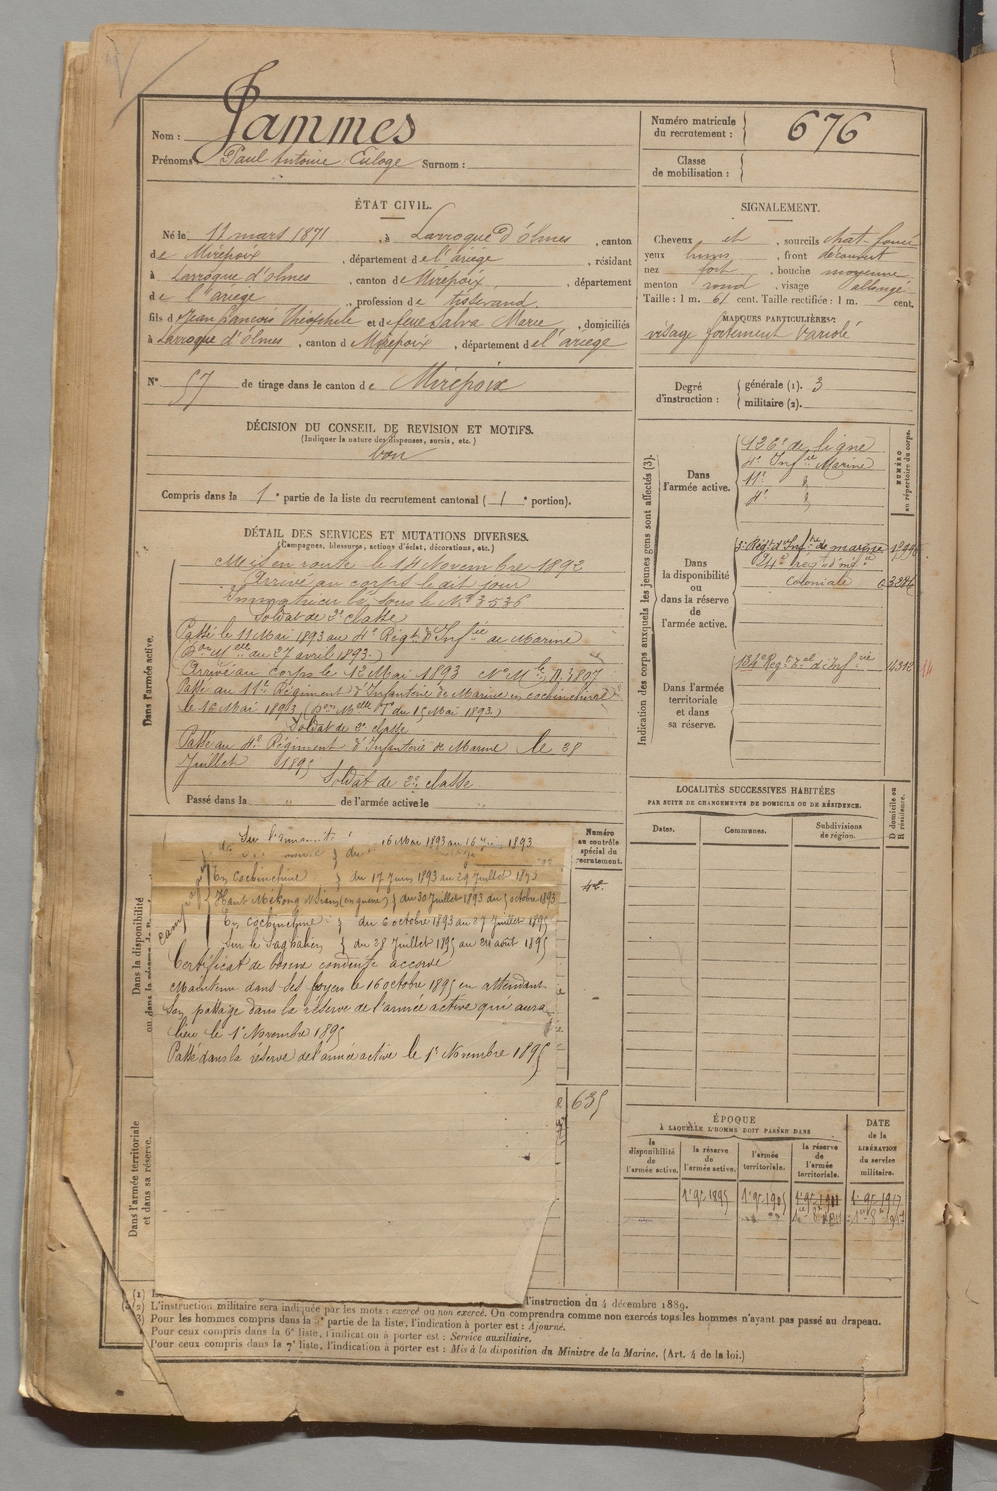 Nom : Jammes
Prénoms : Paul Antoine Euloge Surnom :
Numéro matricule du recrutement : 676
Classe de mobilisation :
ÉTAT CIVIL.
Né le 11 mars 1871, à Larroque d'Olmes, canton
de Mirepoix, département de l'ariège, résidant
à Larroque d'olmes, canton de Mirepoix, département
de l'ariege, profession de tisserand
fils d Jean francois Théophile et de feue Salva Marie, domiciliés
à Larroque d'Olmes, canton d Mirepoix, département de l'ariege
N° 57 de tirage dans le canton de Mirepoix
SIGNALEMENT.
Cheveux et, sourcils chat-foncé
yeux bruns, front découvert
nez fort, bouche moyenne
menton rond, visage allongé
Taille : 1 m. 61 cent. Taille rectifiée : 1 m. cent.
MARQUES PARTICULIÈRES :
visage fortement variolé
Degré d'instruction : générale (1). 3
militaire (2).
DÉCISION DU CONSEIL DE REVISION ET MOTIFS.
(Indiquer la nature des dispenses, sursis, etc.)
bon
Compris dans la 1e partie de la liste du recrutement cantonal (1e portion).
DÉTAIL DES SERVICES ET MUTATIONS DIVERSES.
(Campagnes, blessures, actions d'éclat, décorations, etc.)
Dans l'armée active.
Mis en route le 14 Novembre 1892
Arrivé au corps le dit jour
Immatriculé sous le N° 3536
Soldat de 2e classe
Passé le 11 Mai 1893 au 4e Régt d'Infie de Marine
du 27 avril 1893.)
Arrivé au corps le 12 Mai 1893 N° Mle 3807
Passé au 11e Régiment d'Infanterie de Marine en cochinchine
le 16 Mai 1893 du 15 Mai 1893.)
Soldat de 2e classe
Passé au 4e Régiment d'Infanterie de Marine le 28
Juillet 1895
Soldat de 2e classe
Passé dans la " de l'armée active le "
Indication des corps auxquels les jeunes gens sont affectés (3).
NUMÉRO au répertoire du corps.
Dans l'armée active.
126e de ligne
4e Infie Marine
11e
4e
Dans la disponibilité ou dans la réserve de l'armée active.
Régt d'Infie de marine
24e régt d'infie
coloniale
Dans l'armée territoriale et dans sa réserve.
134e Regt tal d'Infie
LOCALITÉS SUCCESSIVES HABITÉES
PAR SUITE DE CHANGEMENTS DE DOMICILE OU DE RÉSIDENCE.
Dates.
Communes.
Subdivisions de région.
D domicile ou R résidence.
Dans la disponibilité
Campagnes
Sur 16 Mai 1893 au 16 Juin 1893
En Cochinchine du 17 Juin 1893 au 29 Juillet 1893
Haut Mékong (en guerre) du 30 Juillet 1893 au 5 octobre 1893
En cochinchine du 6 octobre 1893 au 27 Juillet 1895
Sur le du 28 Juillet 1895 au 24 août 1895
Certificat de bonne conduite accordé
Maintenu dans ses foyers le 16 octobre 1895 en attendant
son passage dans la réserve de l'armée active qui aura
lieu le 1er Novembre 1895
Passé dans la réserve de l'armée active le 1er Novembre 1895
Numéro au contrôle spécial du recrutement.
635
Dans l'armée territoriale et dans sa réserve.
ÉPOQUE
À LAQUELLE L'HOMME DOIT PASSER DANS
la disponibilité de l'armée active.
la réserve de l'armée active.
l'armée territoriale.
la réserve de l'armée territoriale.
DATE de la LIBÉRATION du service militaire.
1er 9e 1895
1er 9e 1905
1er 9e 1911
1er 9e 1917
l'instruction du 4 décembre 1889.
(2) L'instruction militaire sera indiquée par les mots : exercé ou non exercé. On comprendra comme non exercés tous les hommes n'ayant pas passé au drapeau.
(3) Pour les hommes compris dans la 5e partie de la liste, l'indication à porter est : Ajourné.
Pour ceux compris dans la 6e liste, l'indication à porter est : Service auxiliaire.
Pour ceux compris dans la 7e liste, l'indication à porter est : Mis à la disposition du Ministre de la Marine. (Art. 4 de la loi.)